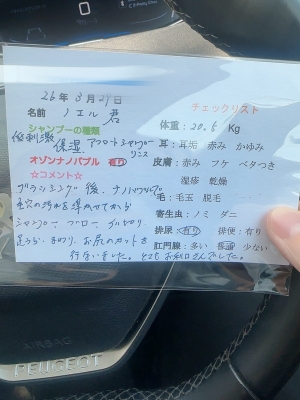 26年3月21日
名前 ノエル 君
チェックリスト
シャンプーの種類
体重: 20.5 Kg
低刺激 保湿 アフロートシャンプー
リンス
耳: 耳垢 赤み かゆみ
オゾンナノバブル 有り
皮膚: 赤み フケ ベタつき
湿疹 乾燥
☆コメント☆
ブラッシング後、ナノバブルで
毛: 毛玉 脱毛
毛穴の汚れを浮かせてから
寄生虫: ノミ ダニ
シャンプー ブロー 爪切り
排尿: 有り 排便: 有り
足うら、まわり、お尻のカットを
肛門腺: 多い 普通 少ない
行ないました。とてもお利口さんでした。
AIRBAG
PEUGEOT